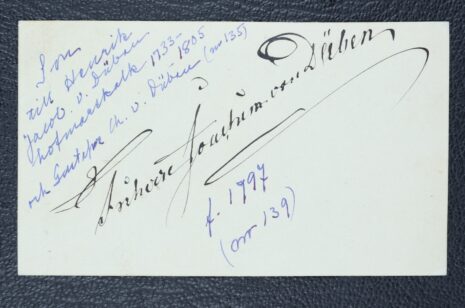 Son
till Henrik
Jacob v. Düben
hofmarskalk 1733-
1805
och Gustafva Ch. v. Düben (nr 135)
Friherre Joachim von Düben
f. 1797
(nr 139)